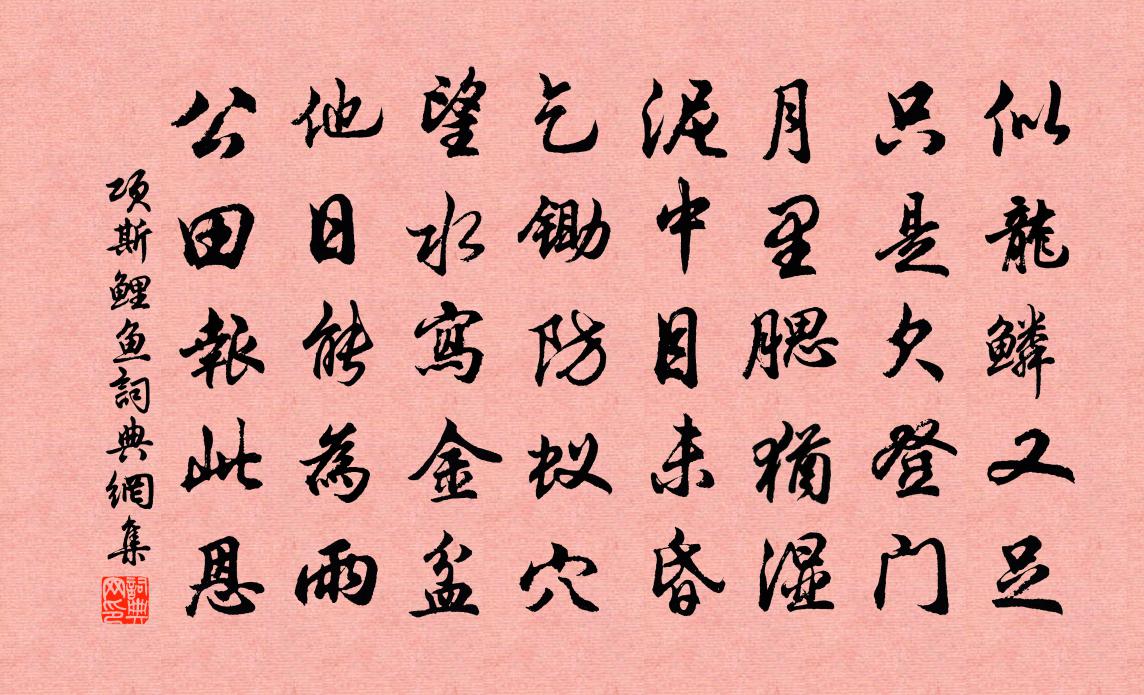 似龍鱗又足
只是欠登门
月里腮猶湿
泥中目未昏
乞鋤防蚁穴
望水寫金盆
他日能為雨
公田報此恩
项斯鲤鱼詞典網集
詞典网印